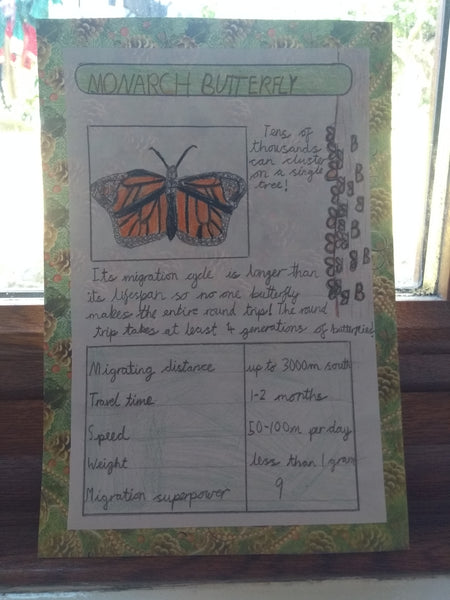 MONARCH BUTTERFLY
Tens of
thousands
can cluster
on a single
tree!
Its migration cycle is longer than
its lifespan so no one butterfly
makes the entire round trip! The round
trip takes at least 4 generations of butterflies!
Migrating distance up to 3000m south
Travel time 1-2 months
Speed 50-100m per day
Weight less than 1 gram
Migration superpower 9